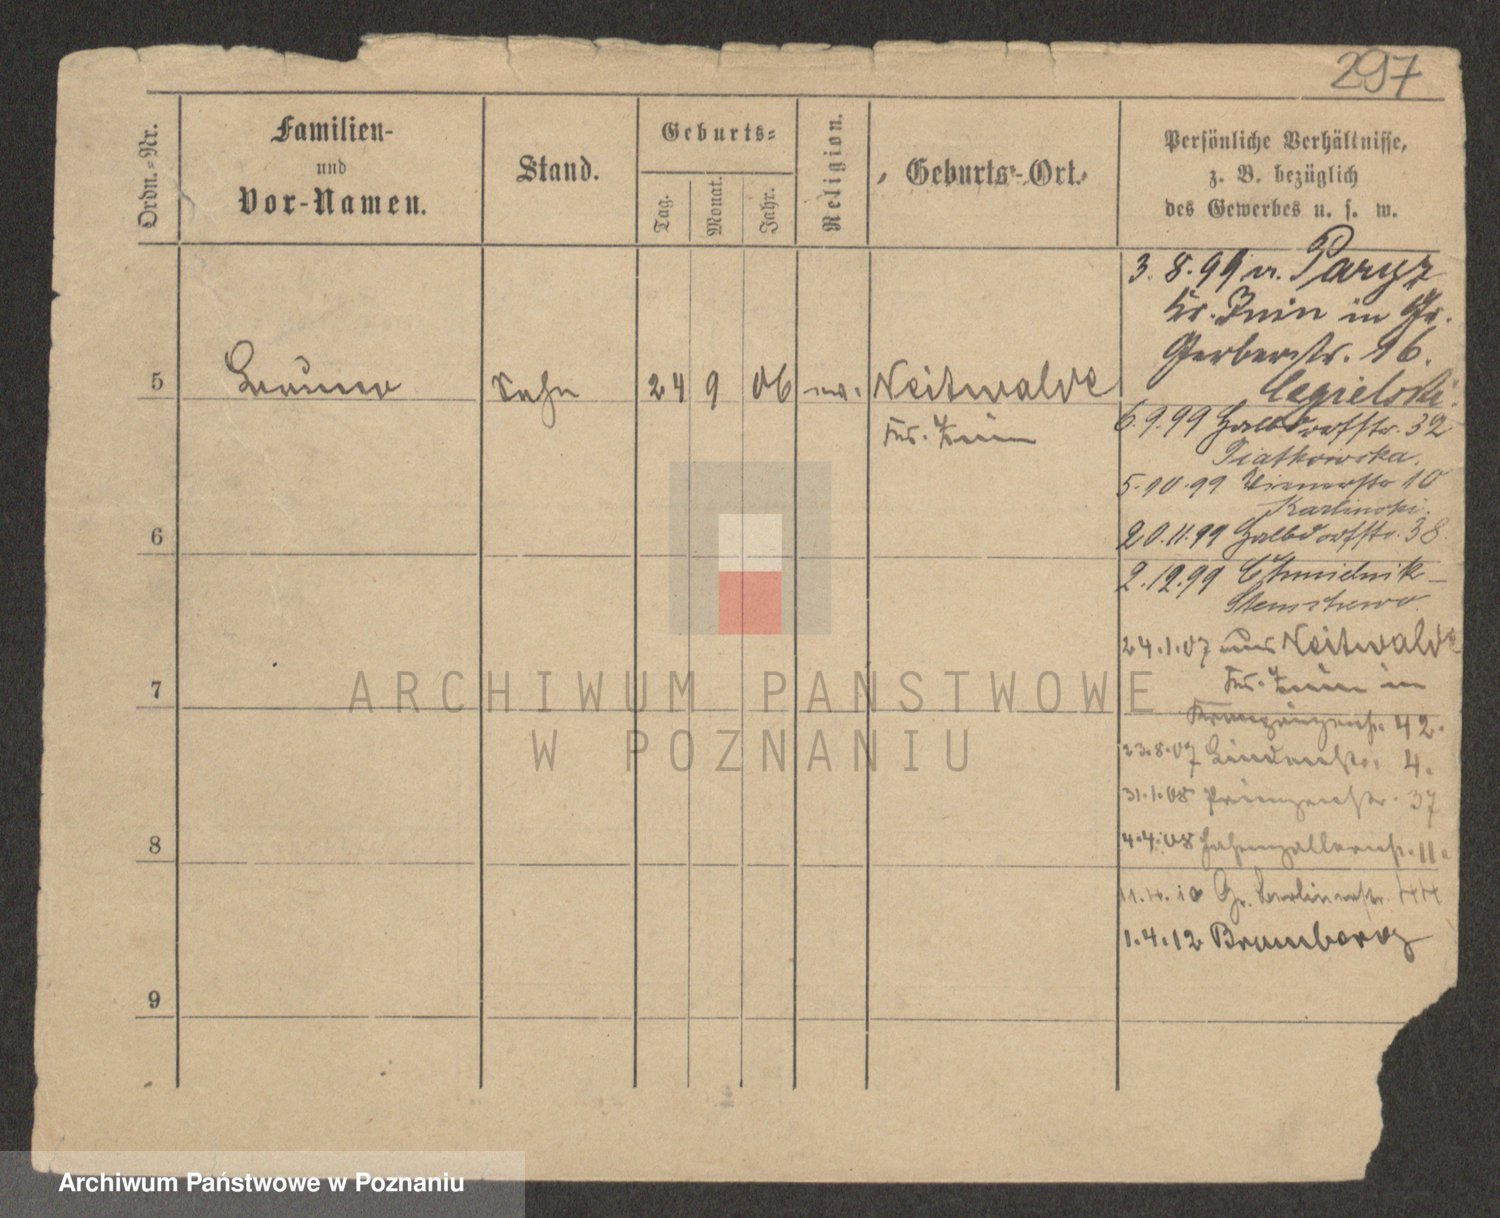 297
Ordn.-Nr.
Familien-
und
Vor-Namen.
Stand.
Geburts-
Tag.
Monat.
Jahr.
Religion.
Geburts-Ort.
Persönliche Verhältnisse,
z. B. bezüglich
des Gewerbes u. s. w.
3. 8. 99 v. Paryz
Kr. Znin in Gr.
Gerberstr. 16.
Cegielski.
5 Bruno Sohn 24 9 06 ev. Neitwalde
Kr. Znin
6.9.99 Halbdorfstr. 32
Piatkowska.
5.10.99 Wienerstr 10
Karlinski.
20.11.99 Halbdorfstr. 38.
6
2.12.99
24.1.07 aus Neitwalde
Kr. Znin in
7
42.
23.8.07 Lindenstr. 4.
31.1.08 Prinzenstr. 37
4.4.08 Hohenzollernstr. 11.
8
Gr. Berlinerstr. 44
1.4.12 Bromberg
9
ARCHIWUM PAŃSTWOWE
W POZNANIU
Archiwum Państwowe w Poznaniu